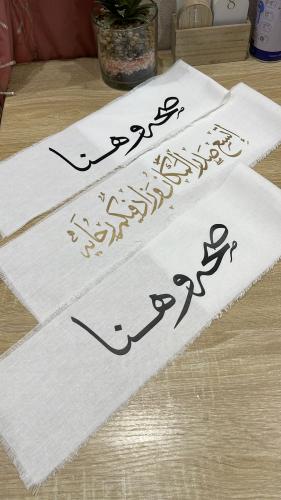 صحه وهنا
اتسع صدر المكان وزاد فيكم رحابه
صحه وهنا